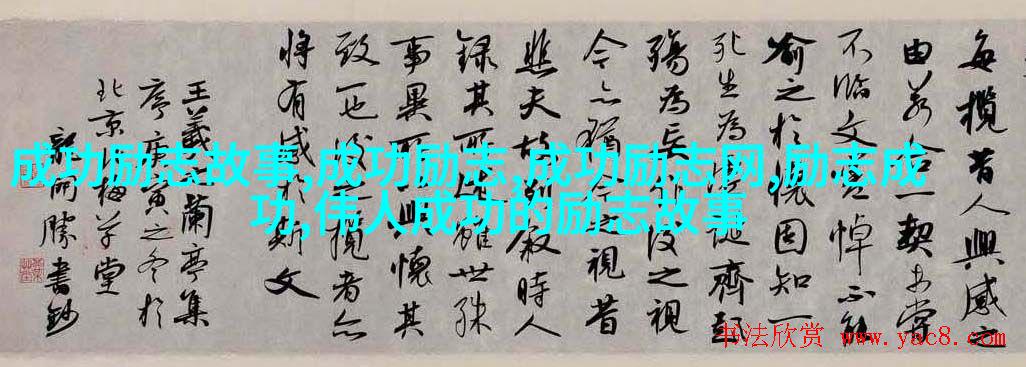 每攬昔人興感之
由若合一契未嘗
不臨文嗟悼不能
喻之於懷固知一
死生為虛誕齊彭
殤為妄作後之視
今亦猶今之視昔
悲夫故列敘時人
錄其所述雖世殊
事異所以興懷其
致一也後之攬者亦
將有感於斯文
王羲之蘭亭集
序庚寅之冬於
北京梅草堂
勝書鈔
成功励志故事,成功励志,成功励志网,励志成
功,伟人成功的励志故事
书法欣赏 www.yac8.com